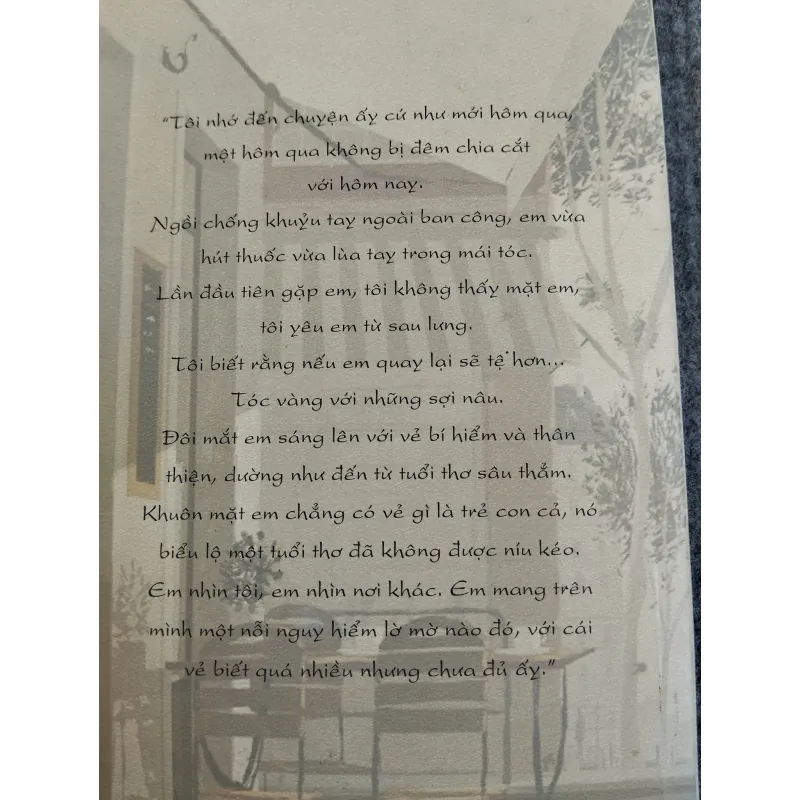 “Tôi nhớ đến chuyện ấy cứ như mới hôm qua,
một hôm qua không bị đêm chia cắt
với hôm nay.
Ngồi chống khuỷu tay ngoài ban công, em vừa
hút thuốc vừa lùa tay trong mái tóc.
Lần đầu tiên gặp em, tôi không thấy mặt em,
tôi yêu em từ sau lưng.
Tôi biết rằng nếu em quay lại sẽ tệ hơn...
Tóc vàng với những sợi nâu.
Đôi mắt em sáng lên với vẻ bí hiểm và thân
thiện, dường như đến từ tuổi thơ sâu thẳm.
Khuôn mặt em chẳng có vẻ gì là trẻ con cả, nó
biểu lộ một tuổi thơ đã không được níu kéo.
Em nhìn tôi, em nhìn nơi khác. Em mang trên
mình một nỗi nguy hiểm lờ mờ nào đó, với cái
vẻ biết quá nhiều nhưng chưa đủ ấy.”